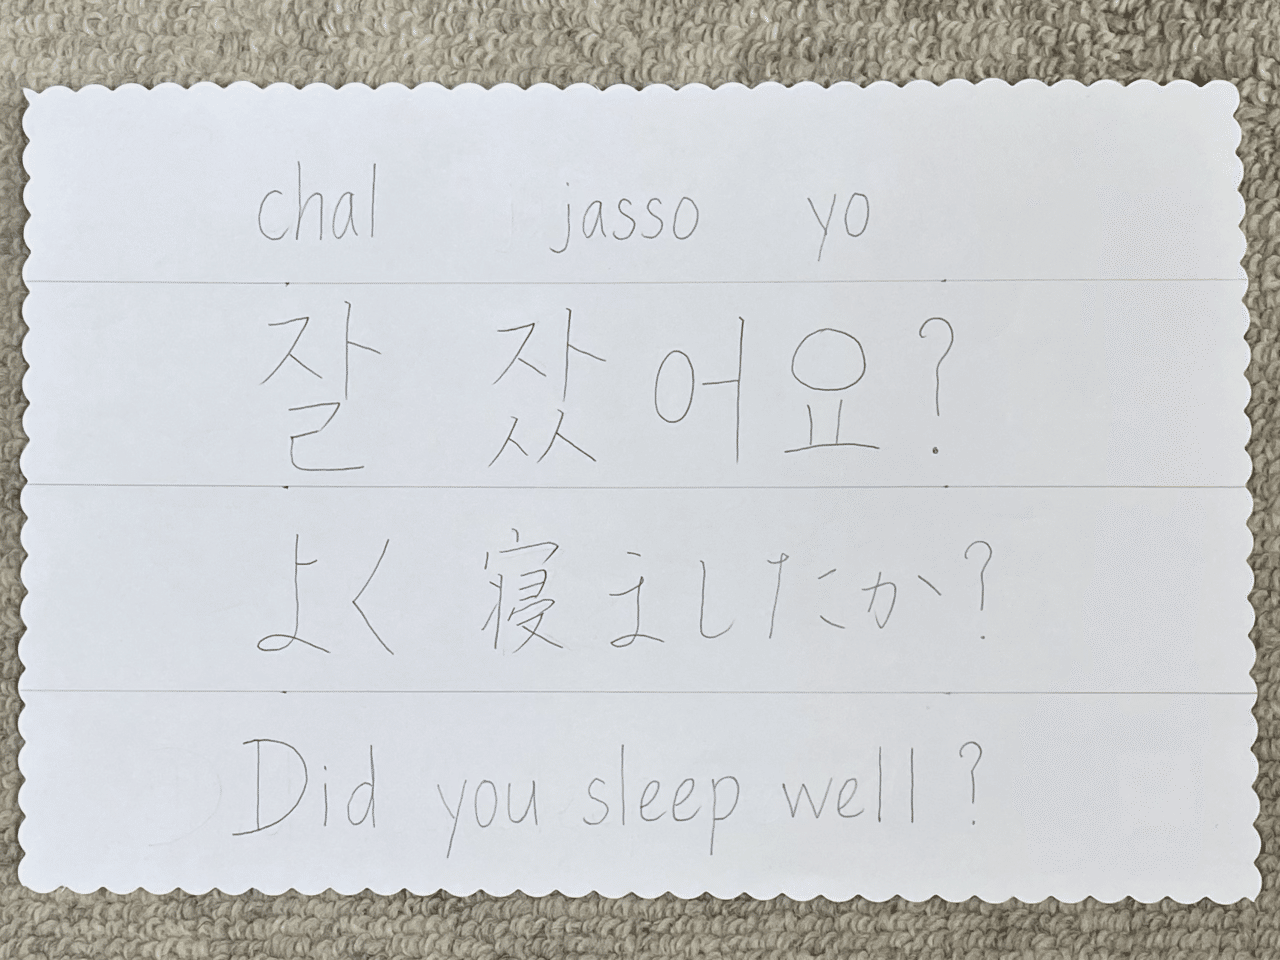 chal jasso yo
잘 잤어요?
よく 寝ましたか?
Did you sleep well?